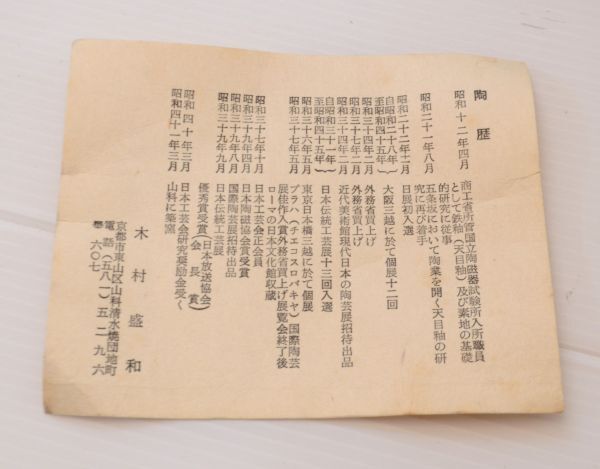 陶歴
昭和十二年四月 商工省所管国立陶磁器試験所入所職員
として鉄釉(天目釉)及び素地の基礎
的研究に従事
昭和二十一年八月 五条坂において陶業を開く天目釉の研
究に再び着手
昭和二十二年十一月 日展初入選
自昭和二十八年
至昭和四十五年 大阪三越に於て個展十二回
昭和三十四年二月 外務省買上げ
昭和三十七年二月 外務省買上げ
昭和三十四年二月 近代美術館現代日本の陶芸展招待出品
自昭和三十一年
至昭和四十五年 日本伝統工芸展十三回入選
昭和三十六年五月 東京日本橋三越に於て個展
昭和三十七年五月 プラハ(チエコスロバキヤ)国際陶芸
展佳作入賞外務省買上げ展覧会終了後
ローマの日本文化館収蔵
昭和三十七年十月 日本工芸会正会員
昭和三十九年四月 日本陶磁協会賞受賞
昭和三十九年八月 国際陶芸展招待出品
昭和三十九年九月 日本伝統工芸展
優秀賞受賞(日本放送協会会長賞)
昭和四十年三月 日本工芸会研究奨励金受く
昭和四十一年三月 山科に築窯
木村盛和
京都市東山区山科清水焼団地町
電話(五八一)五二九六
〒六〇七